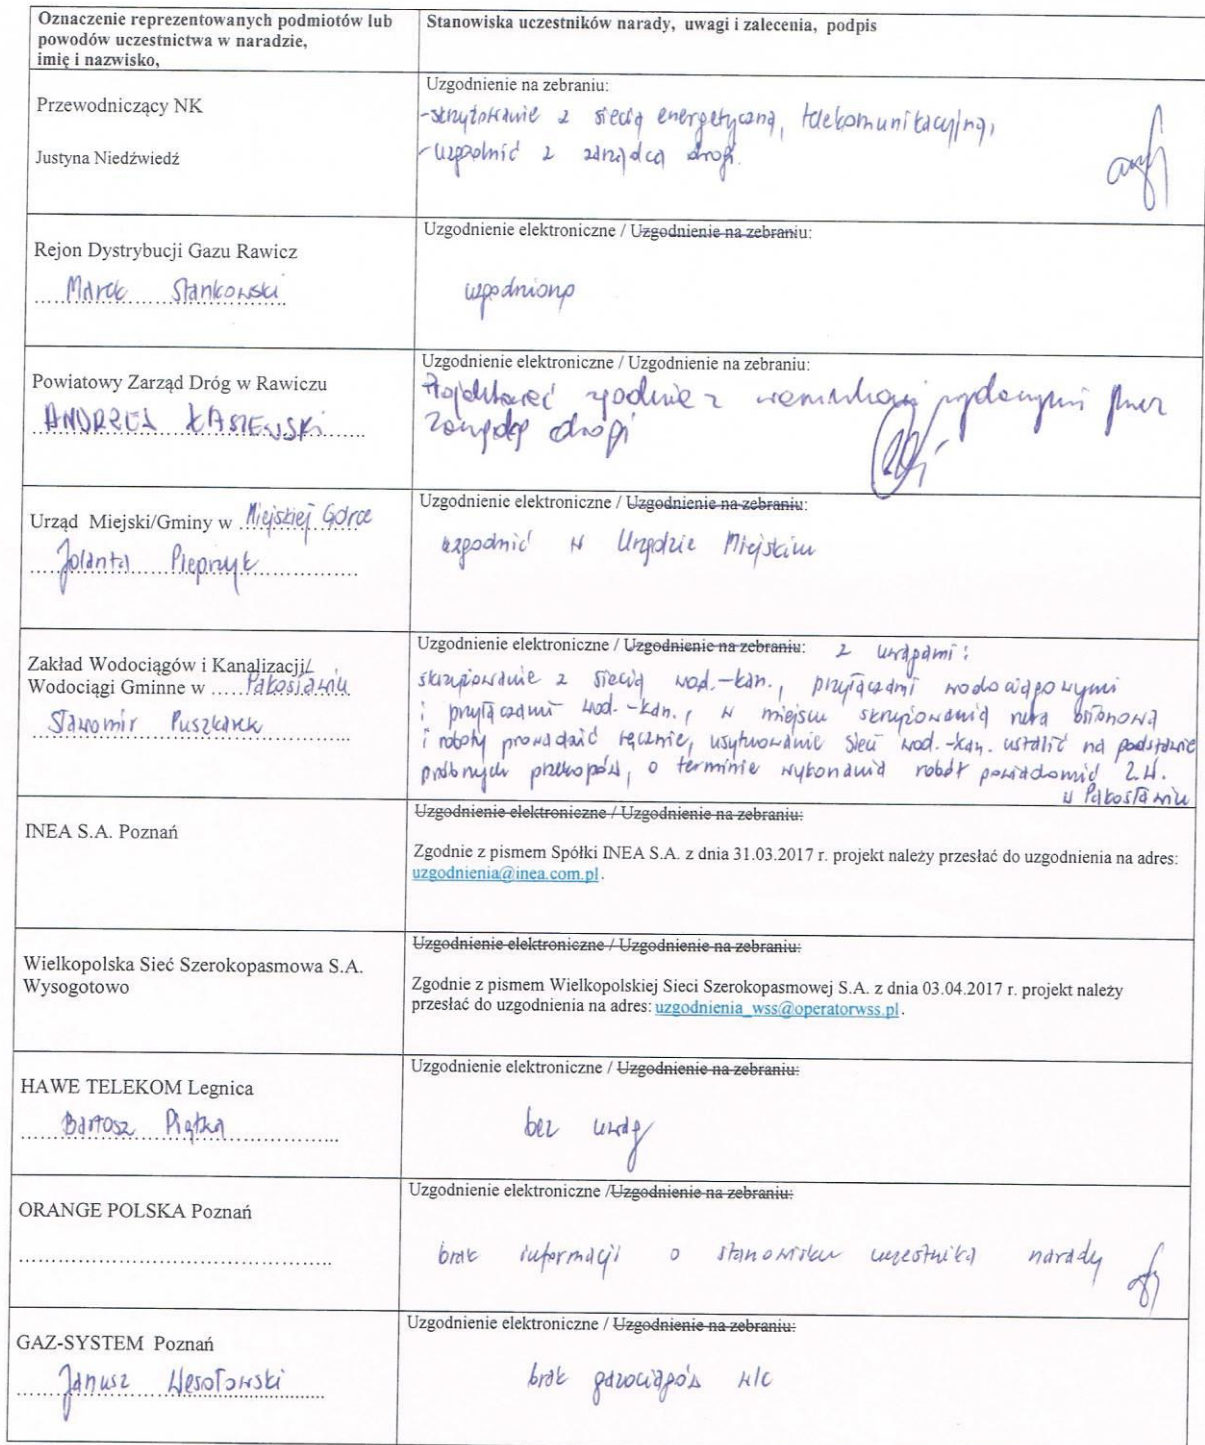 Oznaczenie reprezentowanych podmiotów lub
powodów uczestnictwa w naradzie,
imię i nazwisko,
Stanowiska uczestników narady, uwagi i zalecenia, podpis
Przewodniczący NK
Justyna Niedźwiedź
Uzgodnienie na zebraniu:
- skrzyżowanie z siecią energetyczną, telekomunikacyjną,
- uzgodnić z zarządcą drogi.
Rejon Dystrybucji Gazu Rawicz
Marek Stankowski
Uzgodnienie elektroniczne / Uzgodnienie na zebraniu:
uzgodniono
Powiatowy Zarząd Dróg w Rawiczu
ANDRZEJ ŁASZEWSKI
Uzgodnienie elektroniczne / Uzgodnienie na zebraniu:
Projektować zgodnie z warunkami wydanymi przez
Zarządcę drogi
Urząd Miejski/Gminy w Miejskiej Górce
Jolanta Pieprzyk
Uzgodnienie elektroniczne / Uzgodnienie na zebraniu:
uzgodnić w Urzędzie Miejskim
Zakład Wodociągów i Kanalizacji/
Wodociągi Gminne w Pakosławiu
Sławomir Puszkarek
Uzgodnienie elektroniczne / Uzgodnienie na zebraniu: z uwagami:
skrzyżowanie z siecią wod.-kan., przyłączami wodociągowymi
i przyłączami wod.-kan., w miejscu skrzyżowania rura osłonowa
i roboty prowadzić ręcznie, usytuowanie sieci wod.-kan. ustalić na podstawie
próbnych przekopów, o terminie wykonania robót powiadomić Z.W.
w Pakosławiu
INEA S.A. Poznań
Uzgodnienie elektroniczne / Uzgodnienie na zebraniu:
Zgodnie z pismem Spółki INEA S.A. z dnia 31.03.2017 r. projekt należy przesłać do uzgodnienia na adres:
uzgodnienia@inea.com.pl.
Wielkopolska Sieć Szerokopasmowa S.A.
Wysogotowo
Uzgodnienie elektroniczne / Uzgodnienie na zebraniu:
Zgodnie z pismem Wielkopolskiej Sieci Szerokopasmowej S.A. z dnia 03.04.2017 r. projekt należy
przesłać do uzgodnienia na adres: uzgodnienia_wss@operatorwss.pl.
HAWE TELEKOM Legnica
Bartosz Piątka
Uzgodnienie elektroniczne / Uzgodnienie na zebraniu:
bez uwag
ORANGE POLSKA Poznań
Uzgodnienie elektroniczne /Uzgodnienie na zebraniu:
brak informacji o stanowisku uczestnika narady
GAZ-SYSTEM Poznań
Janusz Wesołowski
Uzgodnienie elektroniczne / Uzgodnienie na zebraniu:
brak gazociągów w/c